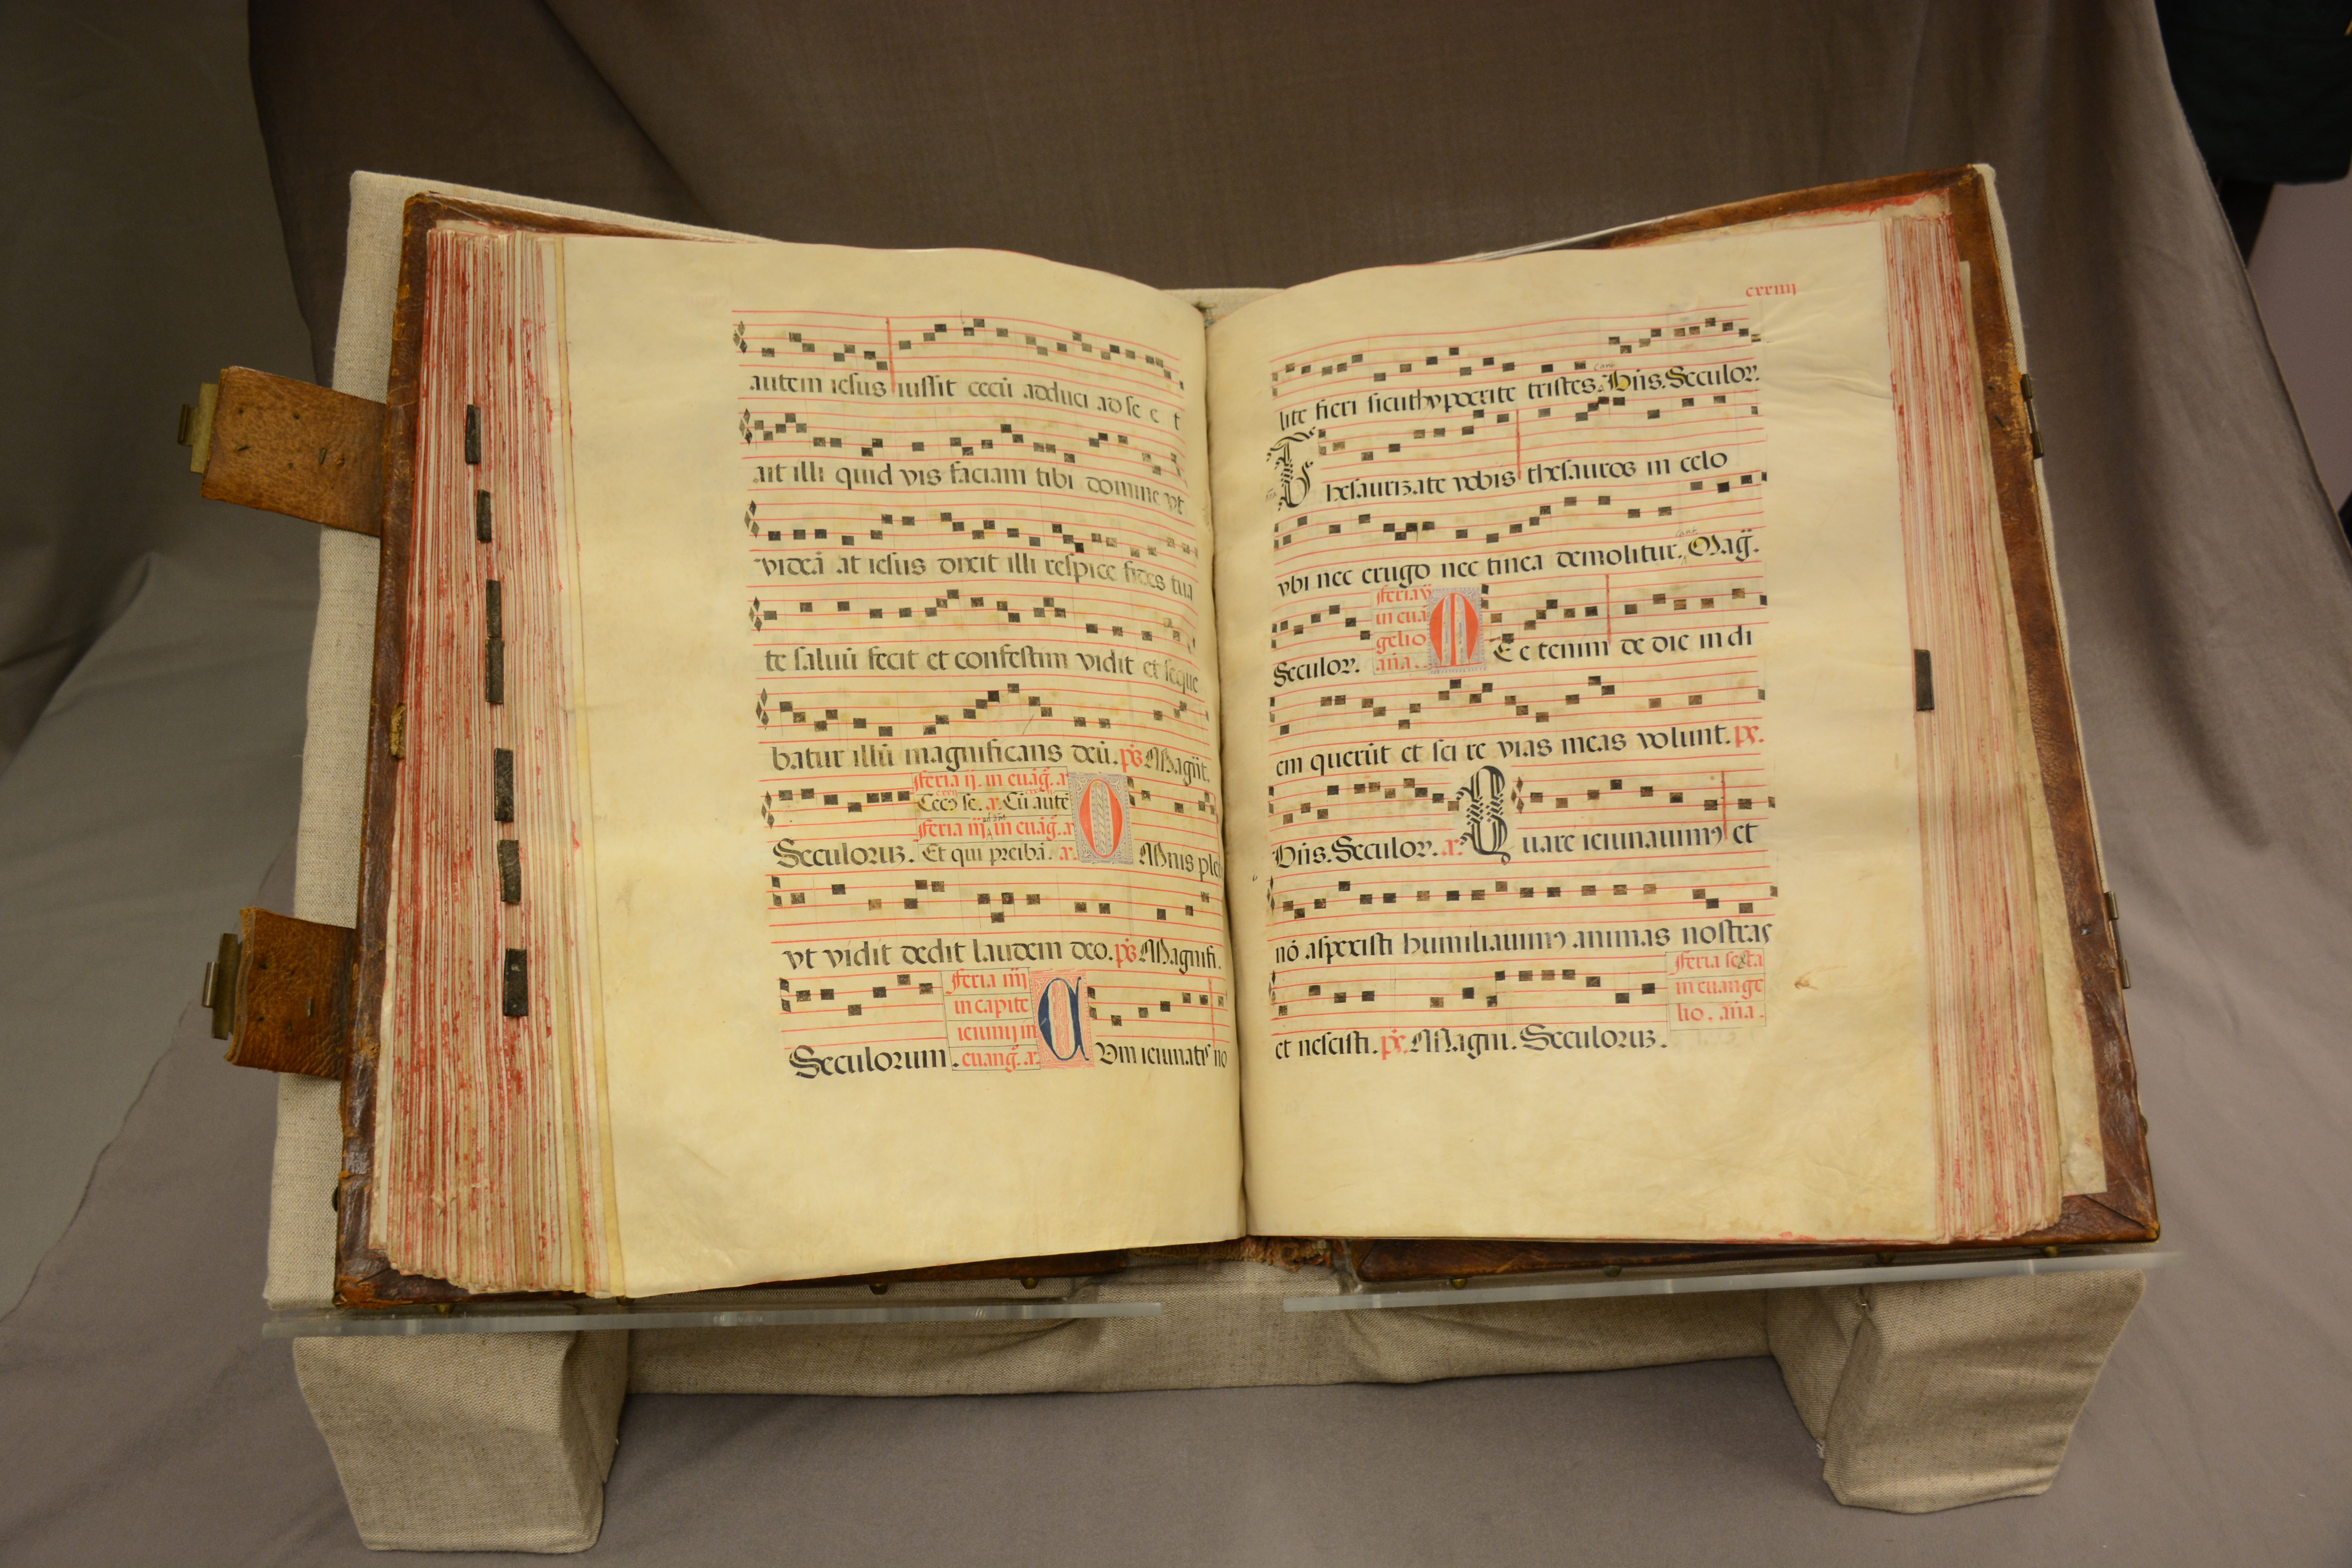 autem iesus iussit cecū adduci ad se e t
ait illi quid vis faciam tibi domine vt
videā at iesus dixit illi respice fides tua
te saluū fecit et confestim vidit et seque
batur illū magnificans deū. ps Magnt.
feria ij. in euāg. a
Cecꝰ se. a. Cū aute
feria iij in euāg. a
Seculoruz. Et qui preibā. a. O Mnis ple
vt vidit dedit laudem deo. ps Magnifi.
feria iiij
in capite
ieiunij in
Seculorum. euang. a. C Vm ieiunatis no
cxxiiij
lite fieri sicut hypocrite tristes. Bn̄s. Seculor.
T hesaurizate vobis thesauros in celo
vbi nec erugo nec tinea demolitur. Mag.
feria v
in euā
gelio
Seculor. an̄a. M E etenim de die in di
em querūt et sci re vias meas volunt. ps.
Bn̄s. Seculor. a. Q uare ieiunauimꝰ et
nō aspexisti humiliauimꝰ animas nostras
feria sexta
in euange
lio. an̄a.
et nescisti. ps. Magni. Seculoruz.